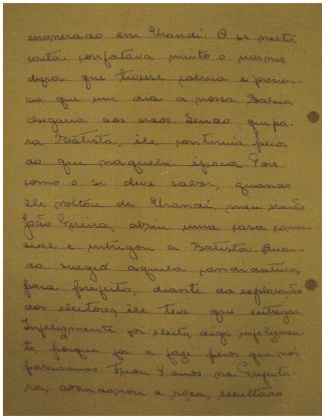 exonerado em Urandi. O sr. nesta
confortava muito o mesmo
dizia que tivesse calma e paciên-
cia que um dia a nossa Bahia
chegaria aos eixos. Sendo que pa-
ra Batista, ele continua peior
do que naquela época. Pois
como o sr. deve saber, quando
ele voltou de Urandi, meu irmão
João Pereira, abriu uma casa comer-
cial e entregou a Batista. Quan-
do surgiu aquela candidatura
para prefeito, diante da exploração
aos eleitores, ele teve que entregar.
Infelizmente foi eleito, digo infelizmen-
te, porque foi a faze peior que nós
passamos. Ficou 4 anos na Prefeitu
ra, abandonou a roça, resultado